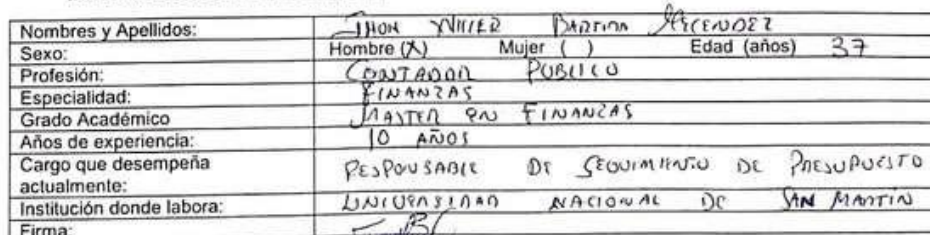 Nombres y Apellidos: JHON
Sexo: Hombre (X) Mujer ( ) Edad (años) 37
Profesión: CONTADOR PUBLICO
Especialidad: FINANZAS
Grado Académico MASTER EN FINANZAS
Años de experiencia: 10 AÑOS
Cargo que desempeña RESPONSABLE DE SEGUIMIENTO DE PRESUPUESTO
actualmente:
Institución donde labora: UNIVERSIDAD NACIONAL DE SAN MARTIN
Firma: